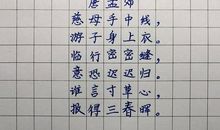 唐孟郊
慈母手中线，
游子身上衣。
临行密密缝，
意恐迟迟归。
谁言寸草心，
报得三春晖。